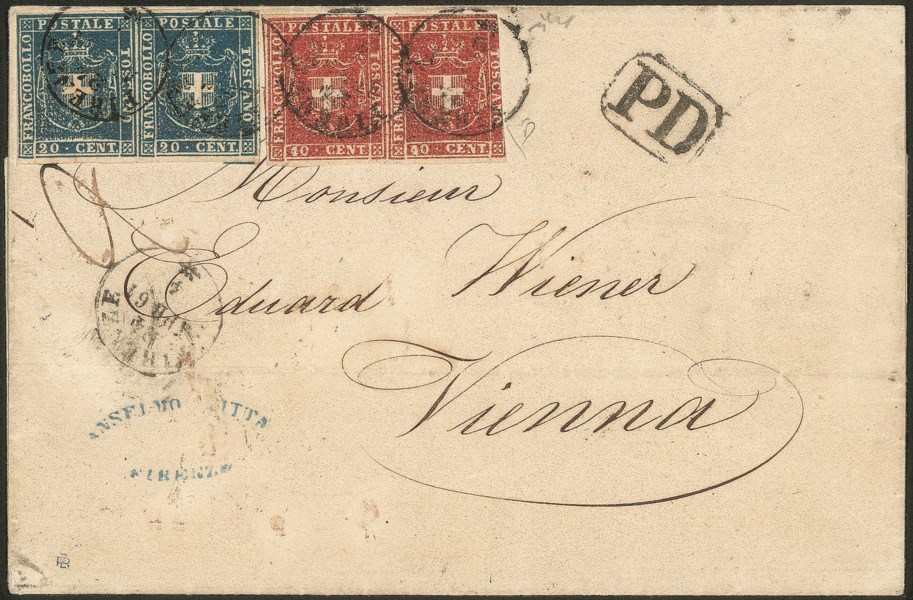 FRANCOBOLLO POSTALE TOSCANO
20 CENT.
FRANCOBOLLO POSTALE TOSCANO
20 CENT.
FRANCOBOLLO POSTALE TOSC
40 CENT.
FRANCOBOLLO POSTALE
40 CENT.
PD
Monsieur
Eduard Wiener
Vienna
ANSELMO
FIRENZE